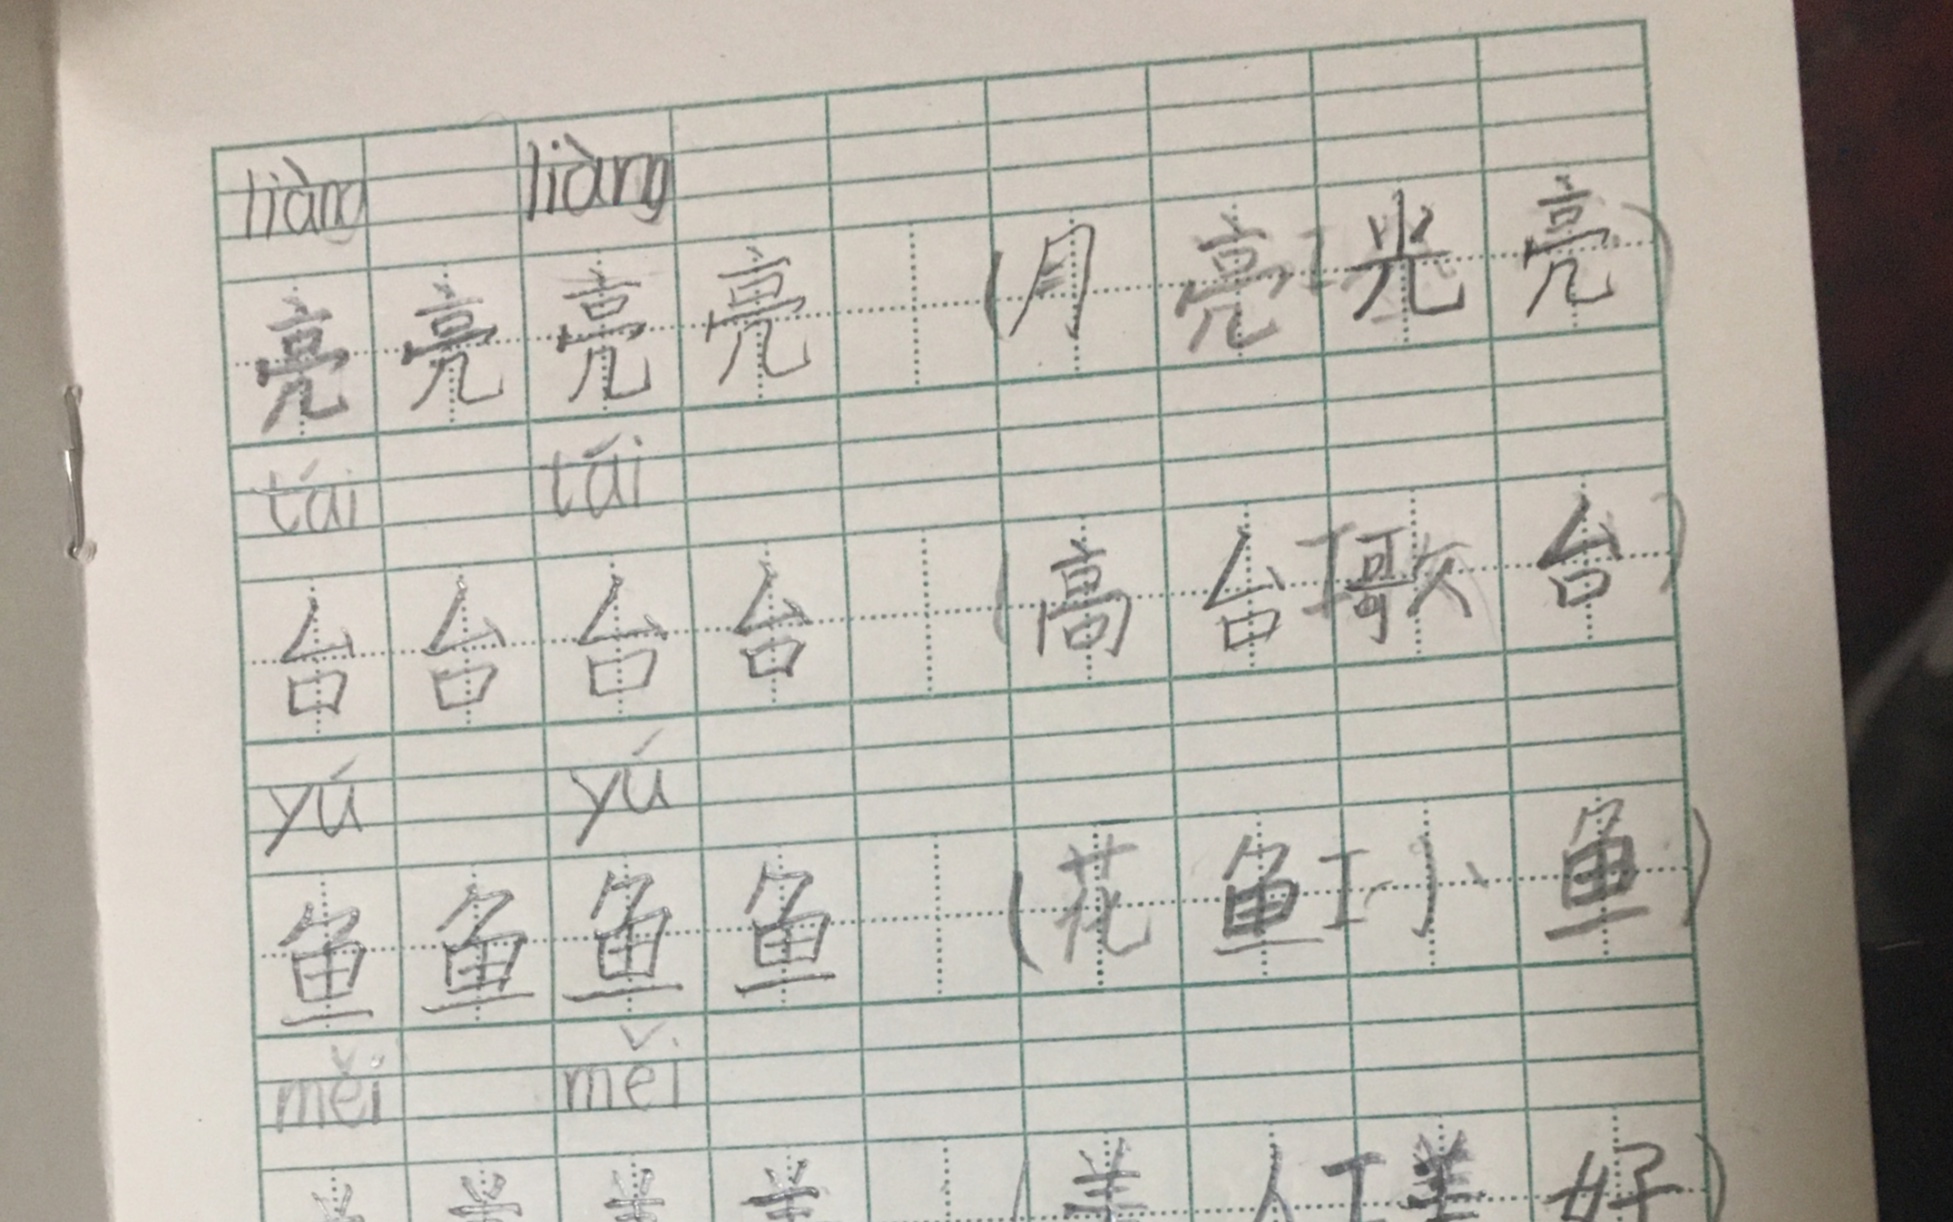 liàng liàng
亮 亮 亮 亮 (月 亮 工 光 亮)
tái tái
台 台 台 台 (高 台 工 歌 台)
yú yú
鱼 鱼 鱼 鱼 (花 鱼 工 小 鱼)
měi měi
美 美 美 美 (美 人 工 美 好)